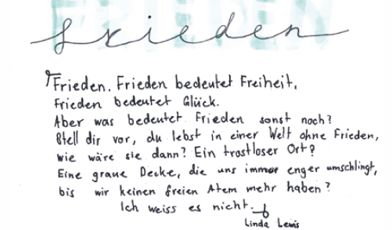 frieden
Frieden. Frieden bedeutet Freiheit,
Frieden bedeutet Glück.
Aber was bedeutet Frieden sonst noch?
Stell dir vor, du lebst in einer Welt ohne Frieden,
wie wäre sie dann? Ein trostloser Ort?
Eine graue Decke, die uns immer enger umschlingt,
bis wir keinen freien Atem mehr haben?
Ich weiss es nicht.
Linda Lewis